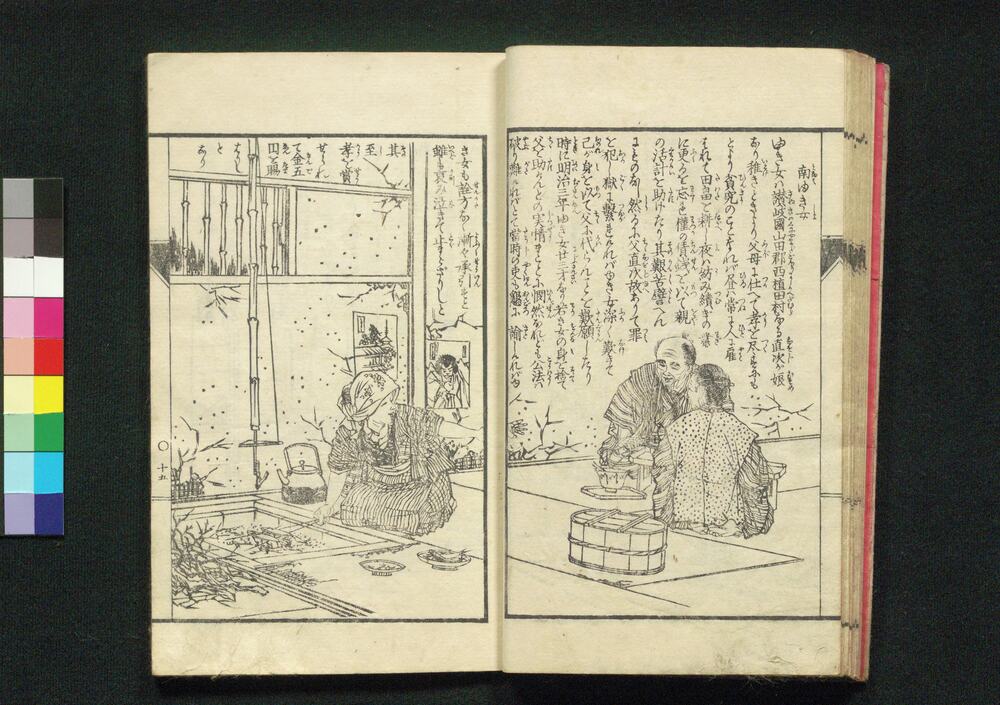 南ゆき女
ゆき女ハ讃岐國山田郡西植田村なる直次が娘
あり稚きときより父母に仕へて孝を尽せしも
とより貧究のことなれバ昼ハ常に人に雇
はれて田畠を耕し夜ハ紡み績ぎの業
に更るを忘れ僅の賃銭を以て親
の活計を助けたり其艱苦譬へん
にものなし然るに父直次故ありて罪
を犯し獄に繋れけれバゆき女深く歎きて
己が身を以て父に代られんことを歎願したり
時に明治三年ゆき女廿三才なり若き女の身を捨て
父を助んとの実情まことに憫然なれども公法ハ
破り難けれバとて當時の吏も懇に諭しけれバゆ
き女も詮方なく漸々承らせしと
雖も哀み泣きて止まざりしと
其
至
孝を賞
せられ
て金五
円を賜
はりし
と
あり
十五